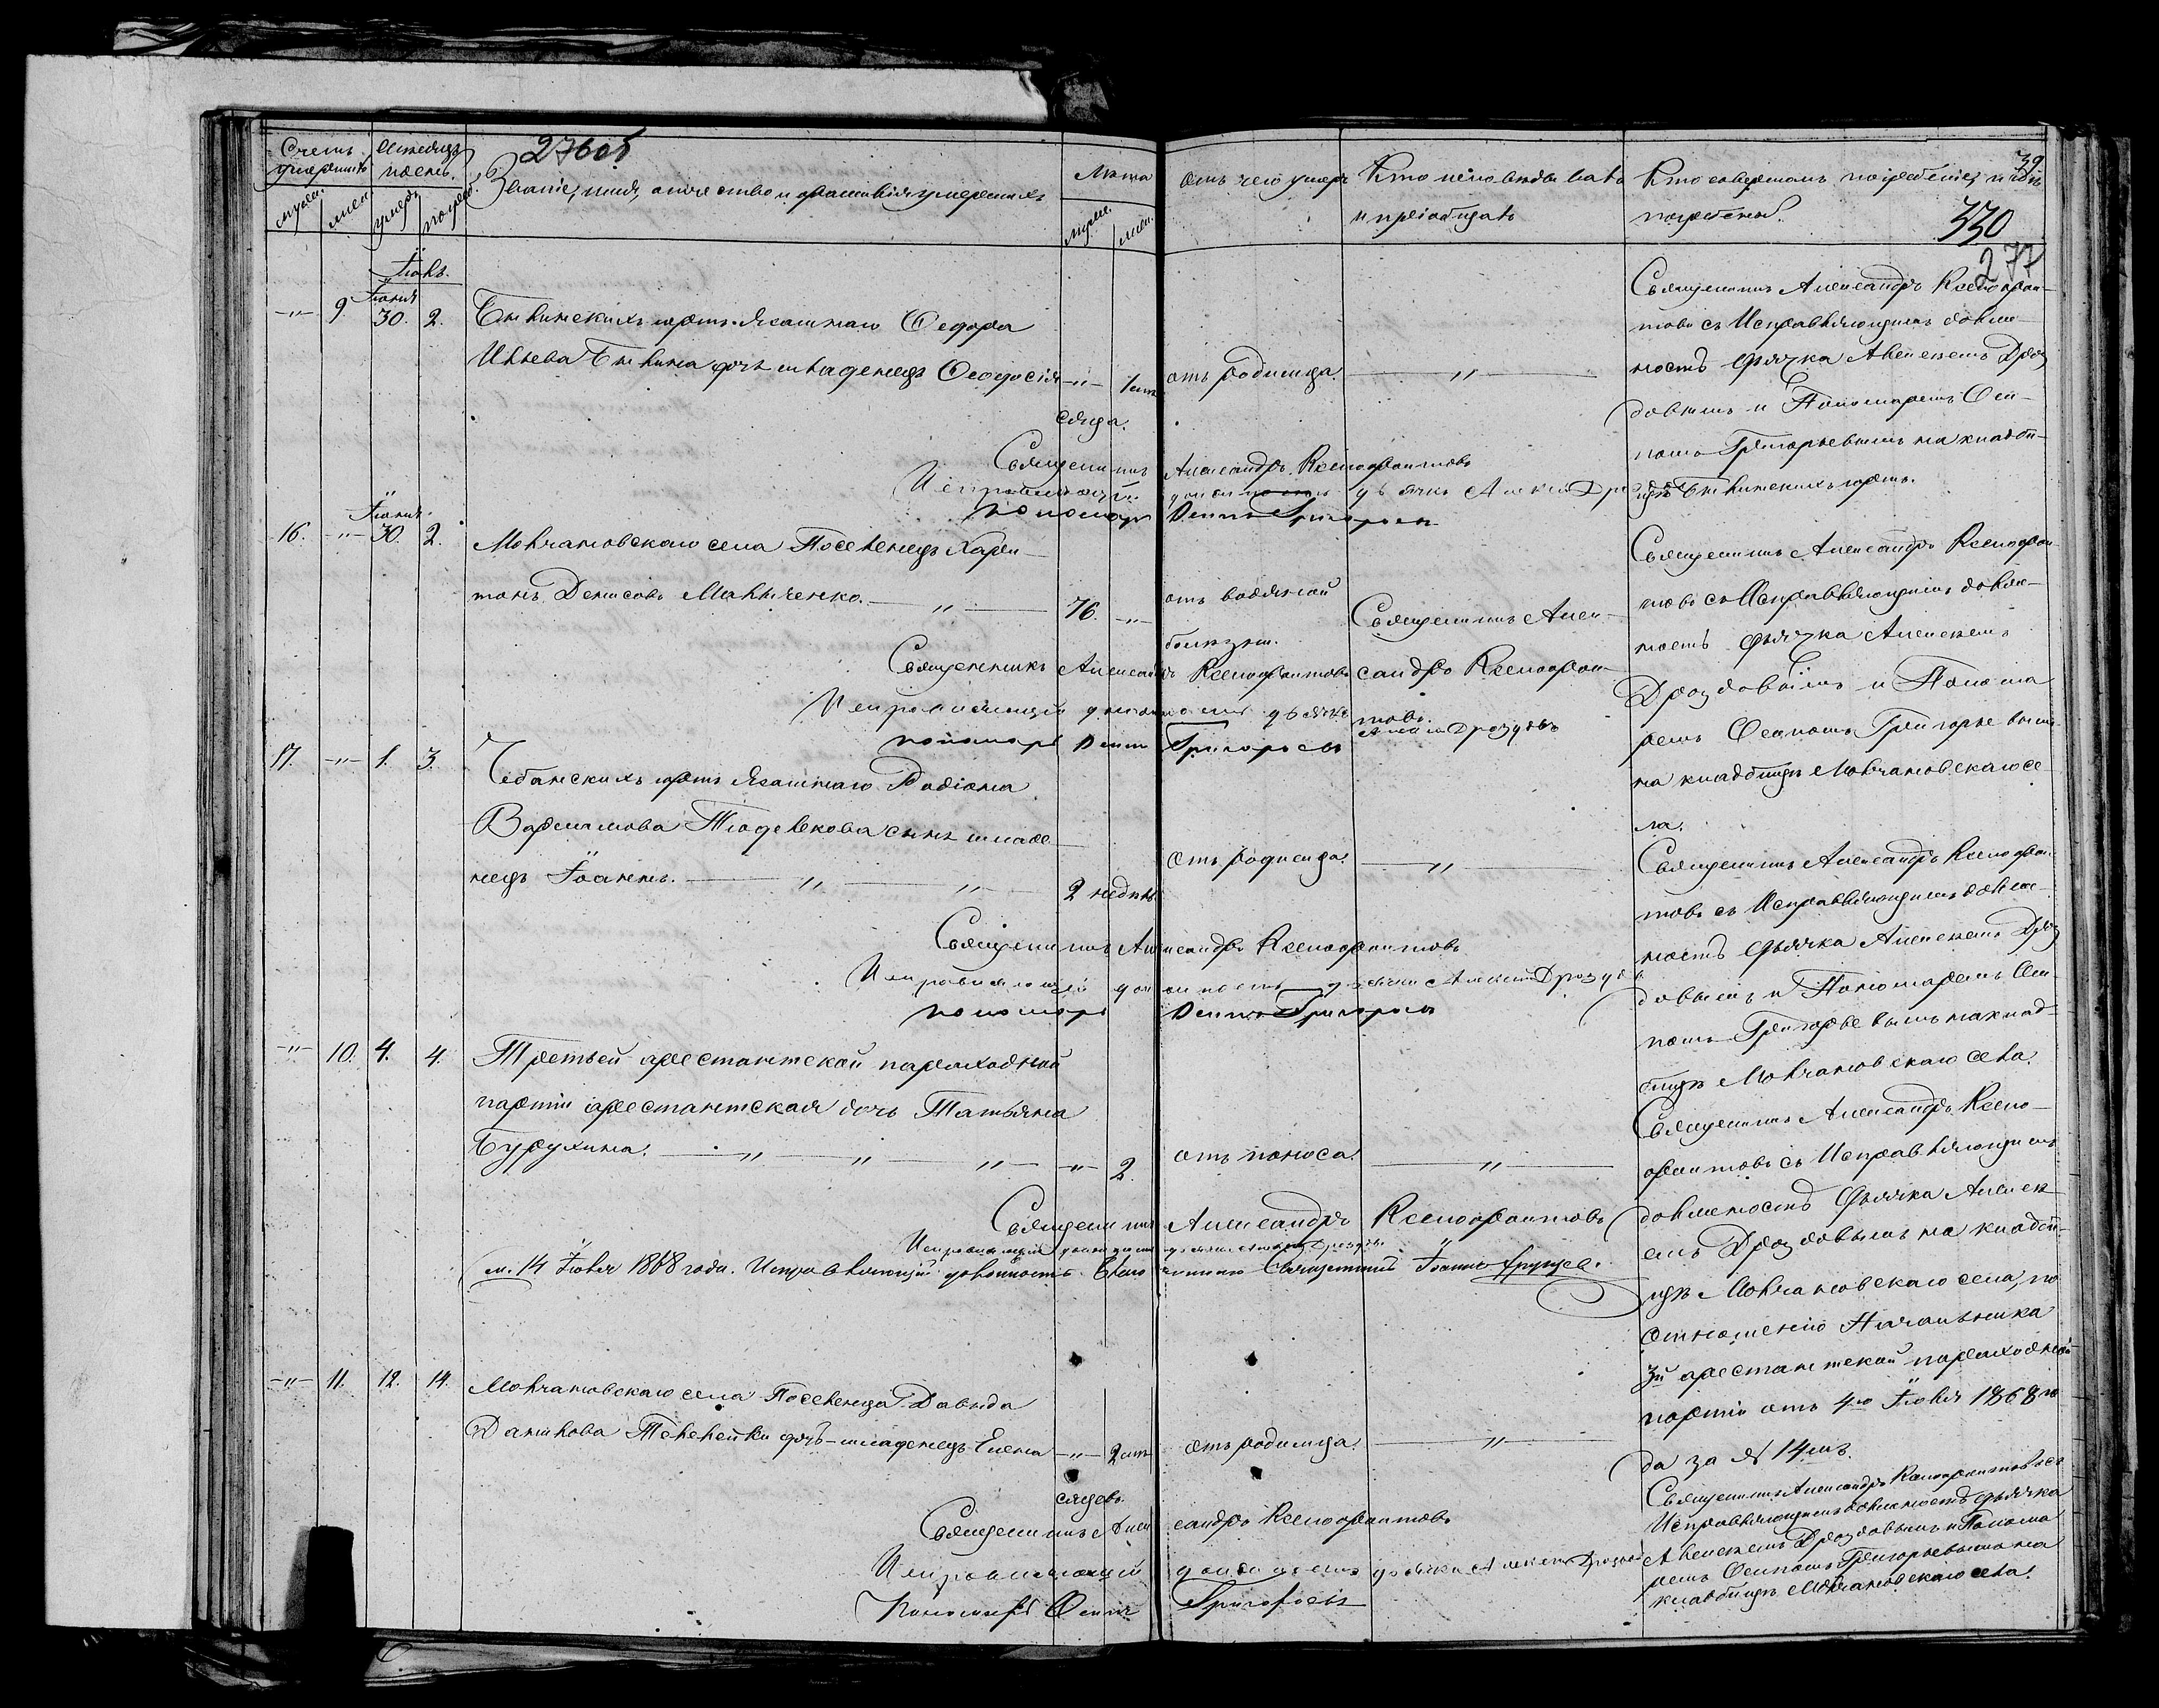 276об
39
330
277
Счетъ умершихъ
Мѣсяцъ и день.
Званіе, имя, отчество и фамилія умершихъ
Лѣта
Отъ чего умеръ
Кто исповѣдывалъ
и пріобщалъ
Кто совершалъ погребеніе, и гдѣ
погребены.
муж.
жен.
умеръ
погреб.
муж.
жен.
Іюль.
Іюня
-"- 9. 30. 2.
юртъ Ясашнаго Ѳедора
дочь младенецъ Ѳеодосія -"- 1 мѣ-
сяца.
отъ родимца. -"-
Священникъ Александръ Ксенофон-
товъ съ Исправляющимъ долж-
ность дьячка Алексѣемъ Дроз-
довымъ и Пономаремъ Оси-
помъ Григорьевымъ на кладби-
щѣ юртъ.
Священникъ Александръ Ксенофонтовъ
Исправляющій должность дьячка Алексей Дроздовъ
пономарь Осипъ Григорьевъ
Іюня.
16. -"- 30. 2.
Молчановскаго села Поселенецъ Хари-
тонъ Денисовъ -"- 76. -"-
отъ водяной
болѣзни.
Священникъ Алек-
сандръ Ксенофон-
товъ.
Священникъ Александръ Ксенофон-
товъ съ Исправляющимъ долж-
ность дьячка Алексѣемъ
Дроздовымъ и Понома-
ремъ Осипомъ Григорьевымъ
на кладбищѣ Молчановскаго се-
ла.
Священникъ Александръ Ксенофонтовъ
Исправляющій должность дьячка Алексей Дроздовъ
пономарь Осипъ Григорьевъ
17. -"- 1. 3.
юртъ Ясашнаго Родіона
сынъ младе-
нецъ Іоаннъ. -"- -"- 2 недѣль
Отъ родимца. -"-
Священникъ Александръ Ксенофон-
товъ съ Исправляющимъ долж-
ность дьячка Алексѣемъ Дроз-
довымъ и Пономаремъ Оси-
помъ Григорьевымъ на клад-
бищѣ Молчановскаго села.
Священникъ Александръ Ксенофонтовъ
Исправляющій должность дьячка Алексей Дроздовъ
пономарь Осипъ Григорьевъ
-"- 10. 4. 4.
Третьей арестантской пароходной
партіи арестантская дочь Татьяна
Бурухина. -"- -"- -"- -"- 2.
отъ поноса. -"-
Священникъ Александръ Ксено-
фонтовъ съ Исправляющимъ
должность дьячка Алексѣ-
емъ Дроздовымъ на кладби-
щѣ Молчановскаго села, по
отношенію Начальника
3й арестантской пароходной
партіи отъ 4го Іюля 1868 го-
да за № 14мъ.
Священникъ Александръ Ксенофонтовъ
Исправляющій должность дьячка Алексей Дроздовъ
14 Іюля 1868 года. Исправляющій должность Благочиннаго Священникъ Іоаннъ
-"- 11. 12. 14.
Молчановскаго села Поселенца Давыда
Данилова дочь младенецъ Елена -"- 2 мѣ-
сяцевъ.
отъ родимца. -"-
Священникъ Александръ Ксенофонтовъ съ
Исправляющимъ должность дьячка
Алексѣемъ Дроздовымъ и Понома-
ремъ Осипомъ Григорьевымъ на
кладбищѣ Молчановскаго села.
Священникъ Александръ Ксенофонтовъ
Исправляющій должность дьячка Алексей Дроздовъ
Пономарь Осипъ Григорьевъ